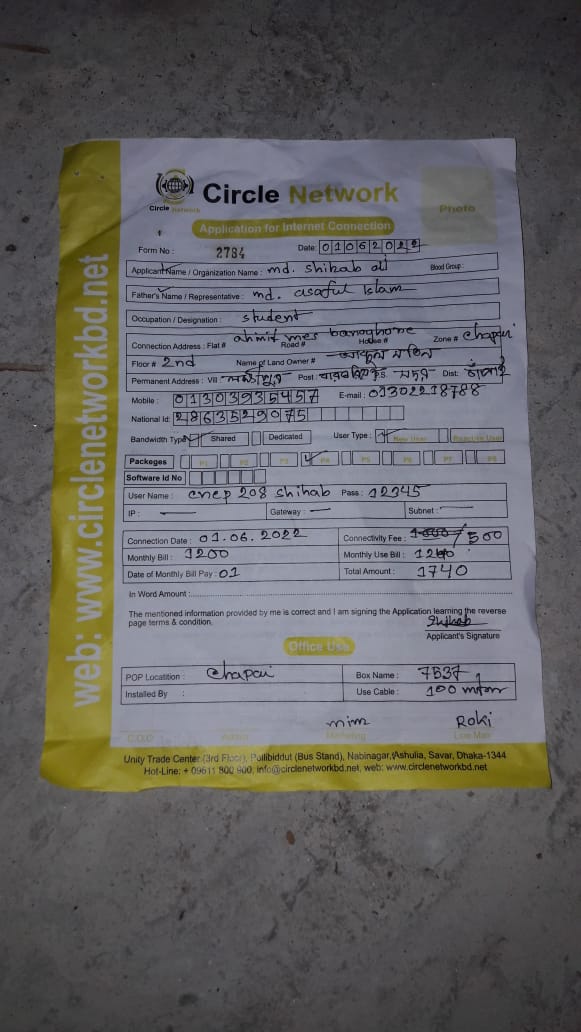 web: www.circlenetworkbd.net
Circle Network
Circle Network
Photo
Application for Internet Connection
Form No : 2784 Date: 01062022
Applicant Name / Organization Name : md. shihab ali Blood Group :
Father's Name / Representative : md. asaful Islam
Occupation / Designation : student
Connection Address : Flat # ahmit mes Road # House # Zone # chapai
Floor # 2nd Name of Land Owner #
Permanent Address : Vill Post : Dist:
Mobile : 01303935457 E-mail : 01302218788
National Id: 2863529075
Bandwidth Type Shared Dedicated User Type : New User Reactive User
Packeges P1 P2 P3 P4 P5 P6 P7 P8
Software Id No
User Name : cnep 208 shihab Pass : 12345
IP : Gateway : Subnet :
Connection Date : 01.06.2022 Connectivity Fee : 1000/500
Monthly Bill : 1200 Monthly Use Bill : 1240
Date of Monthly Bill Pay : 01 Total Amount : 1740
In Word Amount :
The mentioned information provided by me is correct and I am signing the Application learning the reverse
page terms & condition.
Shihab
Applicant's Signature
Office Use
POP Locatition : Chapai Box Name : 7537
Installed By : Use Cable : 100
mim Roki
C.O.O Admin Marketing Line Man
Unity Trade Center (3rd Floor), Pollibiddut (Bus Stand), Nabinagar, Ashulia, Savar, Dhaka-1344
Hot-Line: + 09611 800 900, info@circlenetworkbd.net, web: www.circlenetworkbd.net